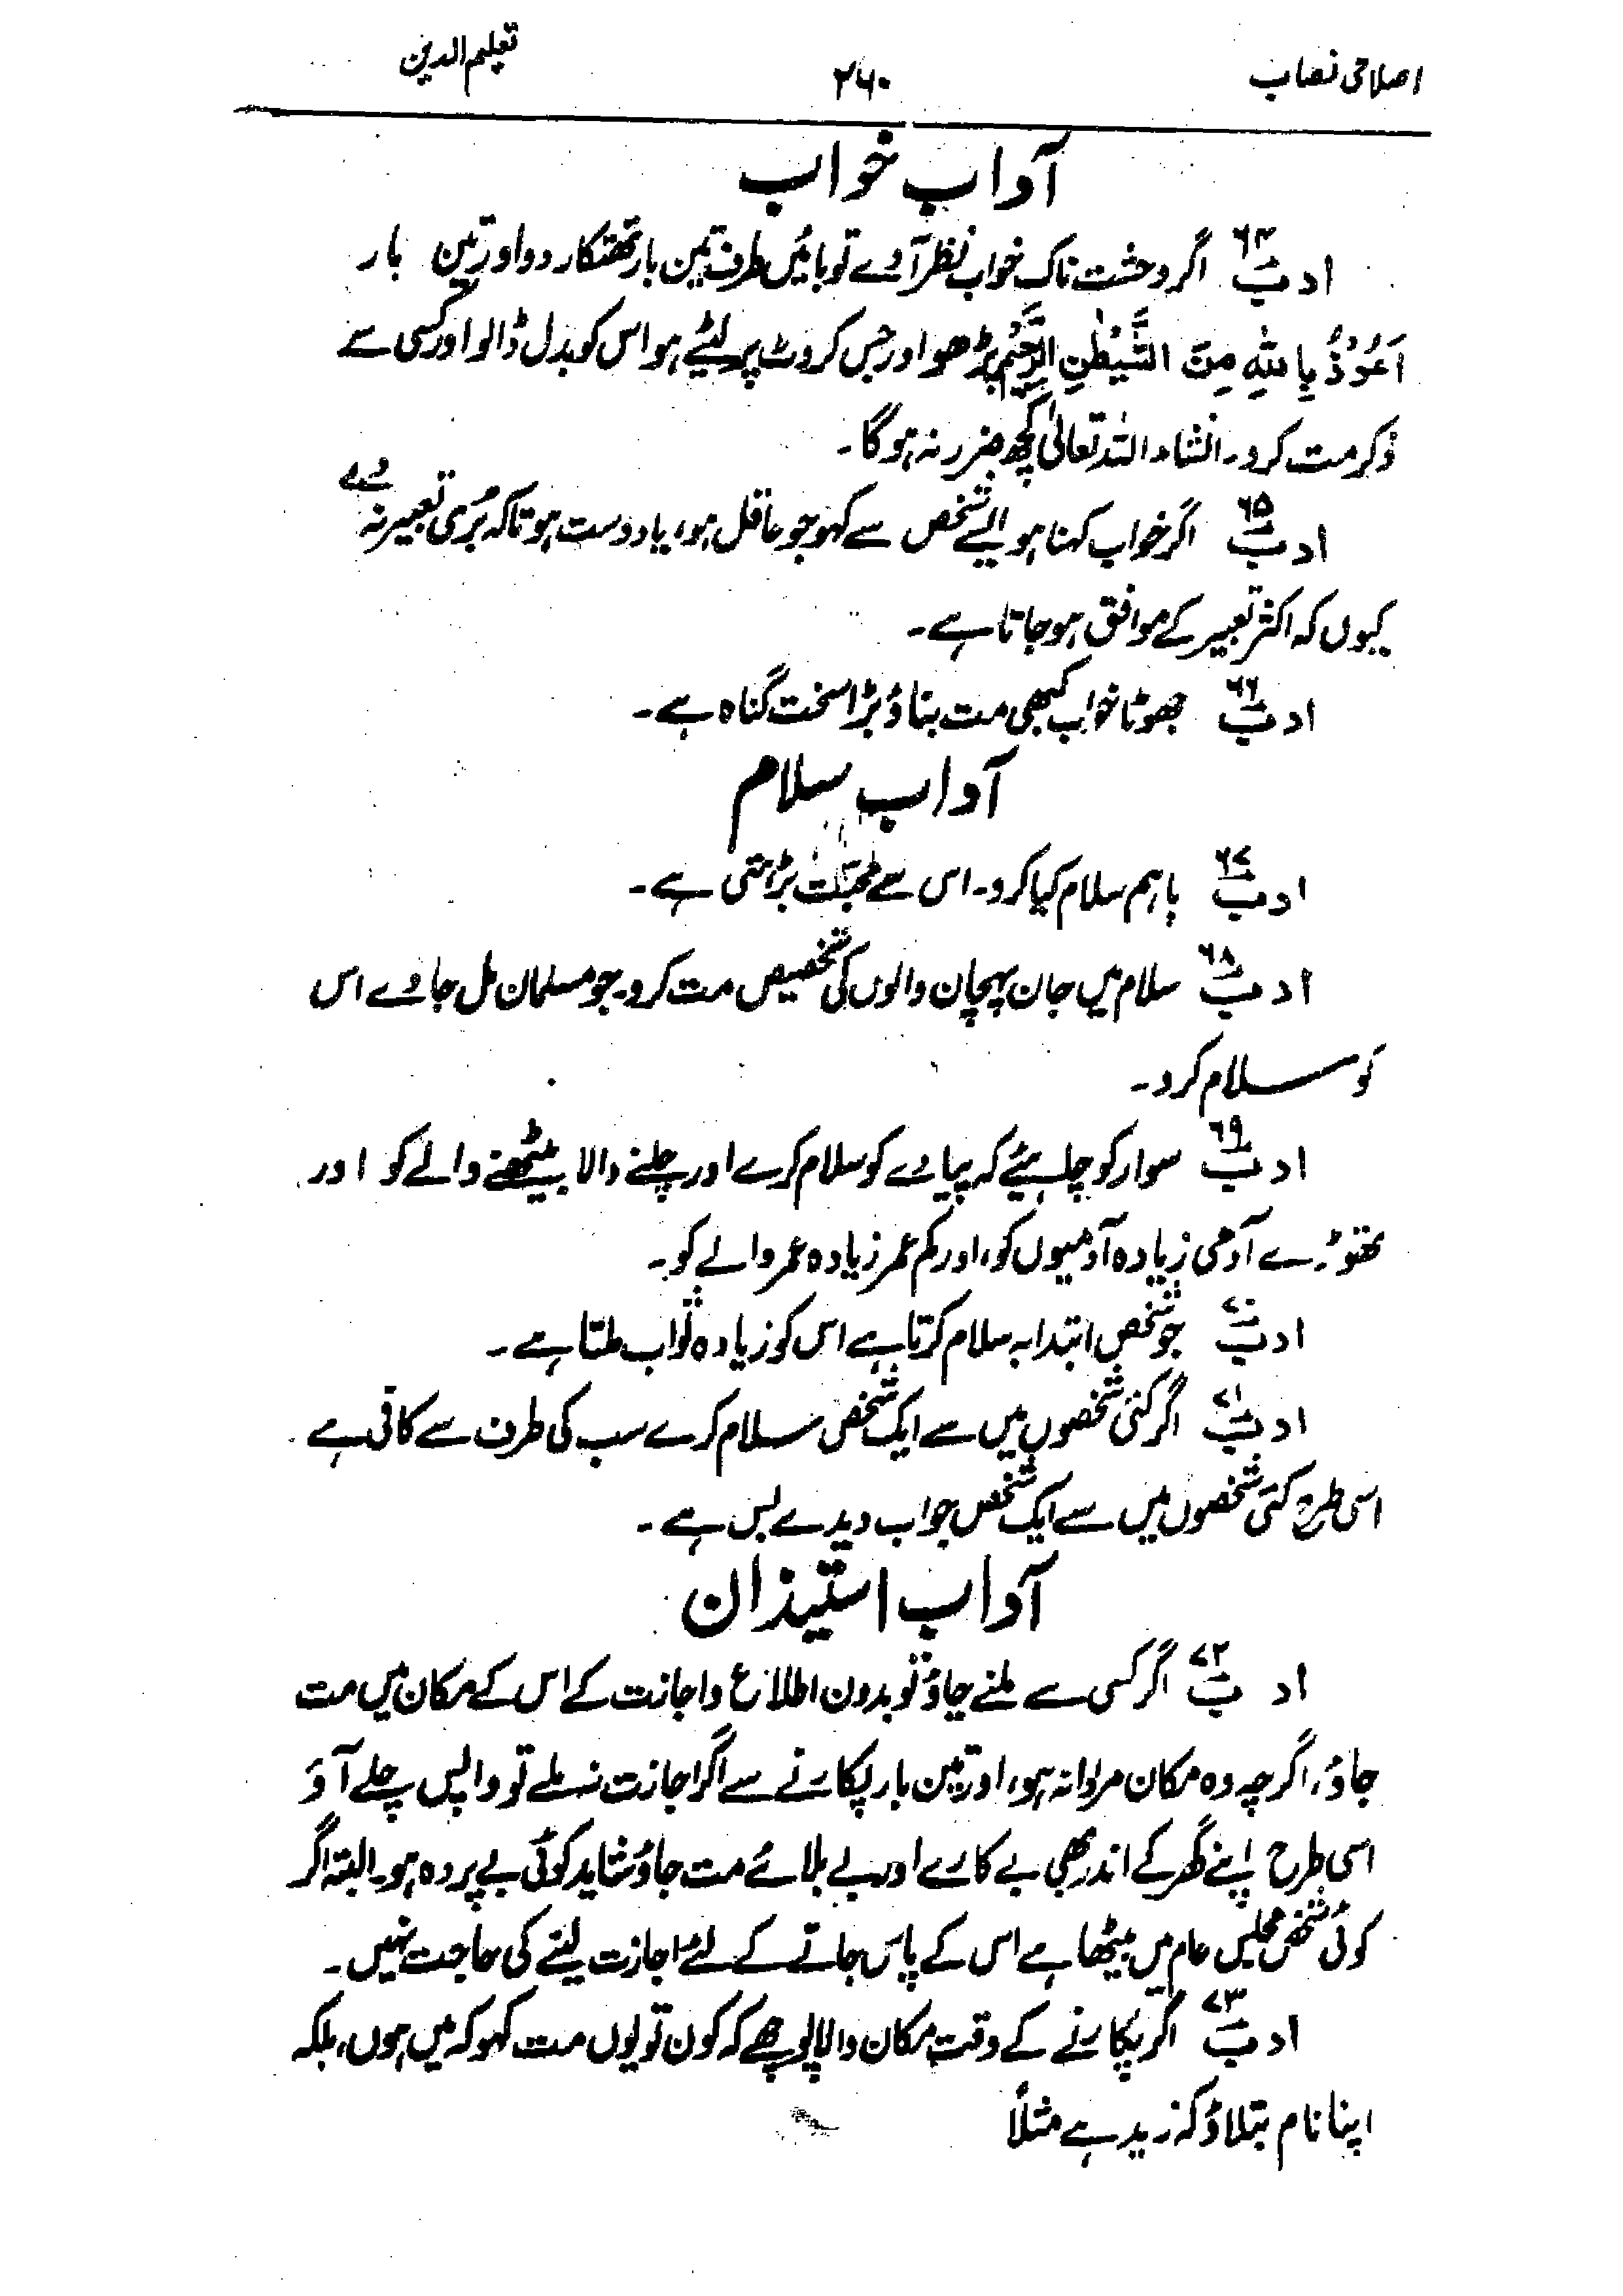 اصلاحی نصاب ۲۶۰ تعلیم الدین
آداب خواب
ادب ۶۴ اگر وحشت ناک خواب نظر آوے تو بائیں طرف تین بار تھتکار دو اور تین بار
اَعُوْذُ بِاللّٰهِ مِنَ الشَّيْطٰنِ الرَّجِيْمِ پڑھو اور جس کروٹ پر لیٹے ہو اس کو بدل ڈالو اور کسی سے
ذکر مت کرو۔ انشاء اللہ تعالیٰ کچھ ضرر نہ ہوگا۔
ادب ۶۵ اگر خواب کہنا ہو ایسے شخص سے کہو جو عاقل ہو، یا دوست ہو تاکہ بُری تعبیر نہ دے
کیوں کہ اکثر تعبیر کے موافق ہو جاتا ہے۔
ادب ۶۶ جھوٹا خواب کبھی مت بناؤ بڑا سخت گناہ ہے۔
آداب سلام
ادب ۶۷ باہم سلام کیا کرو۔ اس سے محبّت بڑھتی ہے۔
ادب ۶۸ سلام میں جان پہچان والوں کی تخصیص مت کرو۔ جو مسلمان مل جاوے اس
کو سلام کرو۔
ادب ۶۹ سوار کو چاہیئے کہ پیادے کو سلام کرے اور چلنے والا بیٹھنے والے کو اور
تھوڑے آدمی زیادہ آدمیوں کو، اور کم عمر زیادہ عمر والے کو۔
ادب ۷۰ جو شخص ابتدا بہ سلام کرتا ہے اس کو زیادہ ثواب ملتا ہے۔
ادب ۷۱ اگر کئی شخصوں میں سے ایک شخص سلام کرے سب کی طرف سے کافی ہے
اسی طرح کئی شخصوں میں سے ایک شخص جواب دیدے بس ہے۔
آداب استیذان
ادب ۷۲ اگر کسی سے ملنے جاؤ تو بدون اطلاع و اجازت کے اس کے مکان میں مت
جاؤ، اگرچہ وہ مکان مردانہ ہو، اور تین بار پکارنے سے اگر اجازت نہ ملے تو واپس چلے آؤ
اسی طرح اپنے گھر کے اندر بھی بے کارے اور بے بلائے مت جاؤ شاید کوئی بے پردہ ہو۔ البتہ اگر
کوئی شخص مجلس عام میں بیٹھا ہے اس کے پاس جانے کے لئے اجازت لینے کی حاجت نہیں۔
ادب ۷۳ اگر پکارنے کے وقت مکان والا پوچھے کہ کون تو یوں مت کہو کہ میں ہوں، بلکہ
اپنا نام بتلاؤ کہ زید ہے مثلاً